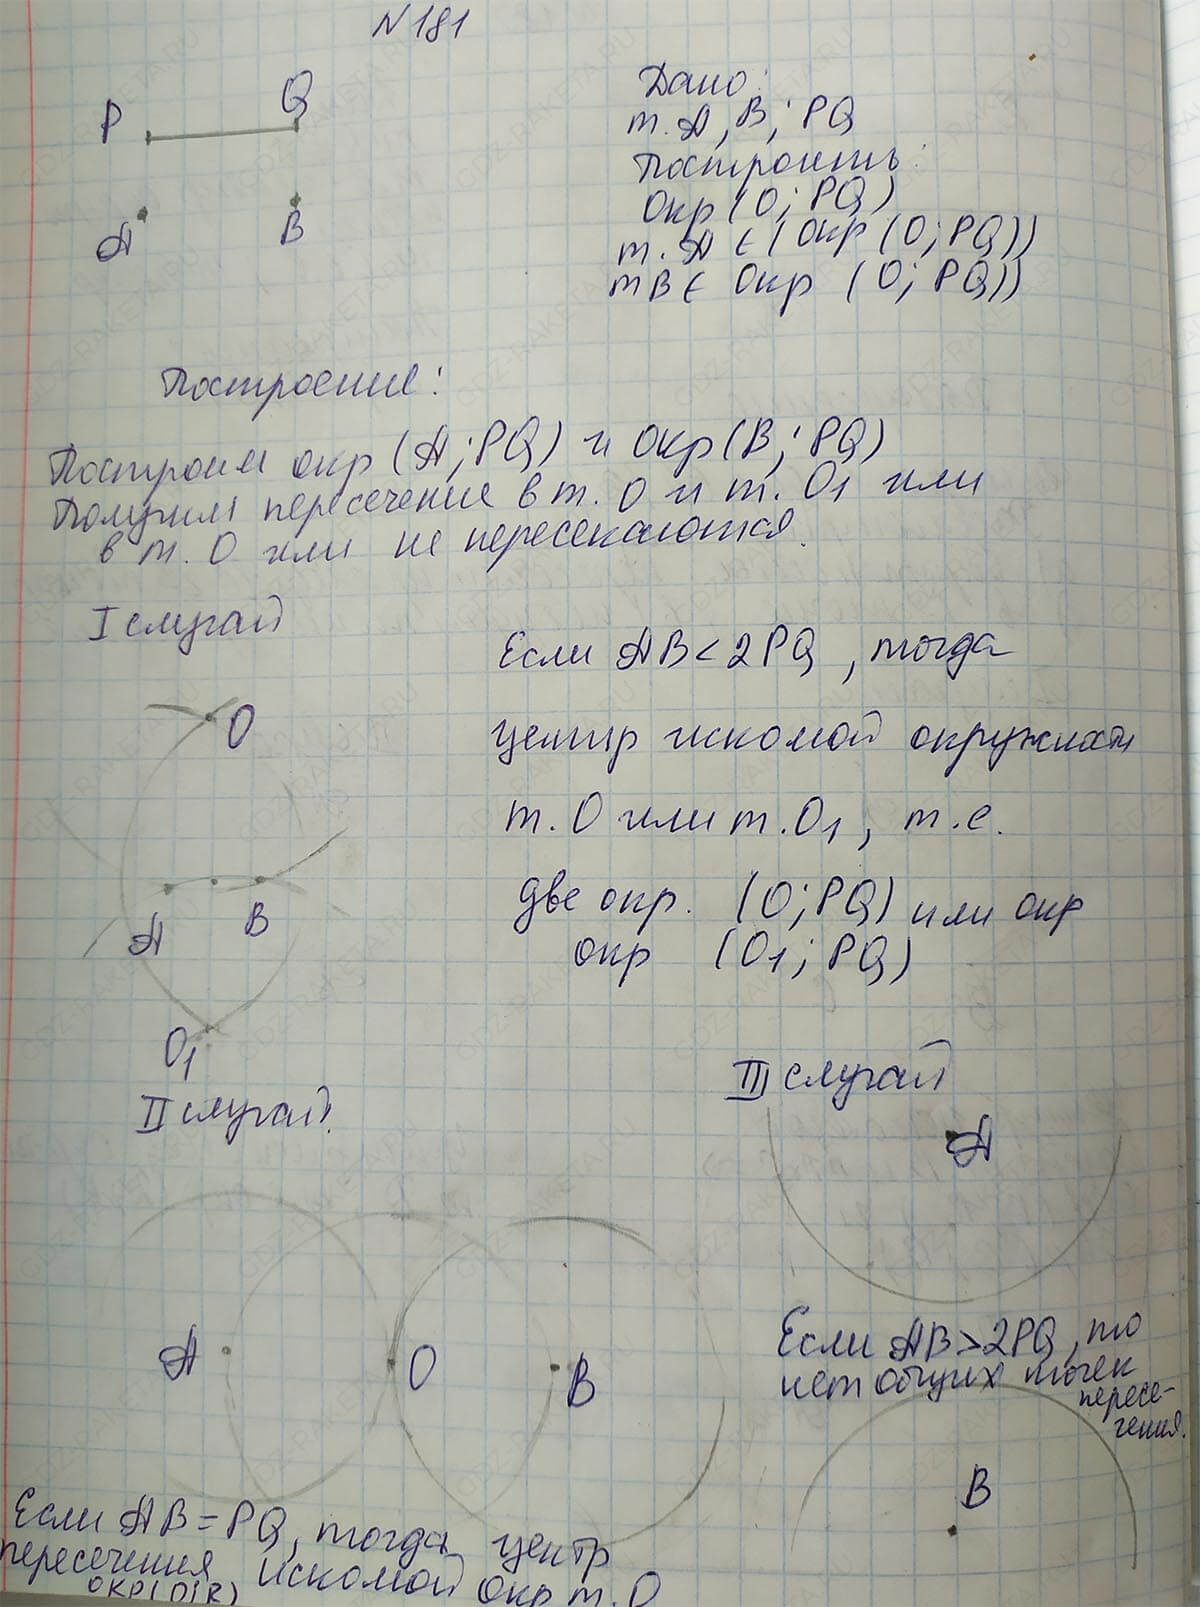 N 181
P Q
A B
Дано:
т. A, B, ; PQ
Построить:
Окр (O; PQ)
т. A ∈ (Окр (O; PQ))
т B ∈ Окр (O; PQ))
Построение:
Построим окр (A; PQ) и окр (B; PQ)
Получим пересечение в т. O и т. O1 или
в т. O или не пересекаются.
I случай
Если AB < 2PQ, тогда
O
центр искомой окружности
т. O или т. O1, т.е.
A B
две окр. (O; PQ) или окр
окр (O1; PQ)
O1
II случай.
III случай
A
A O B
Если AB > 2PQ, то
нет общих точек
пересе-
чения.
B
Если AB = PQ, тогда центр
пересечения искомой окр т. O
окр (O; R)